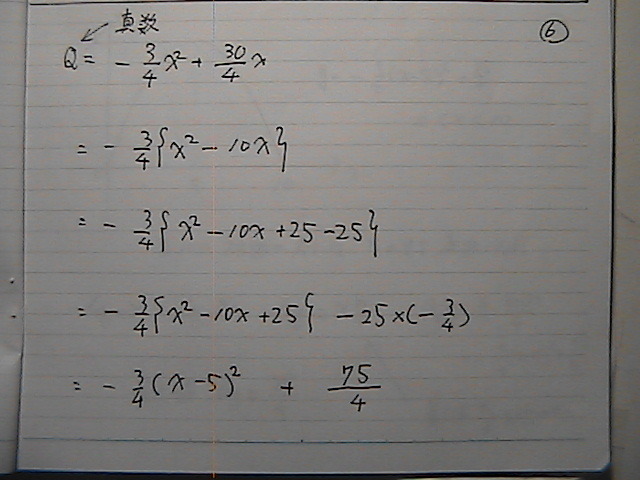 真数 ⑥
Q = - 3/4 x² + 30/4 x
= - 3/4 { x² - 10x }
= - 3/4 { x² - 10x + 25 - 25 }
= - 3/4 { x² - 10x + 25 } - 25 × (- 3/4)
= - 3/4 (x - 5)² + 75/4